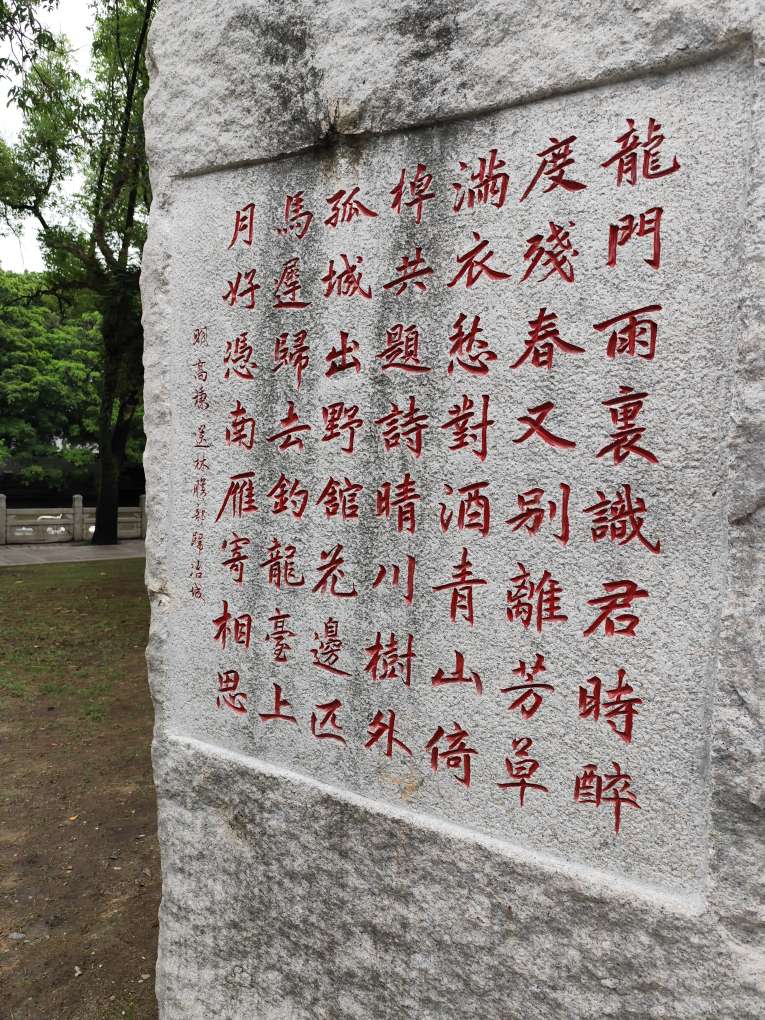 龍門雨裏識君時醉
度殘春又别離芳草
滿衣愁對酒青山倚
棹共題詩晴川樹外
孤城出野館花邊匹
馬遲歸去釣龍臺上
月好憑南雁寄相思
明 高棅 送林膳部歸冶城